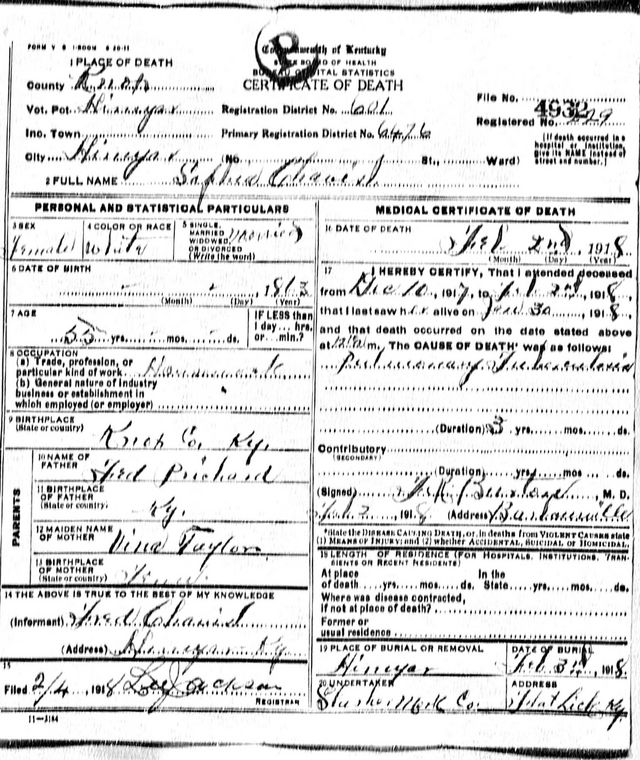 FORM V S 1-500M 6 20-11
Commonwealth of Kentucky
STATE BOARD OF HEALTH
BUREAU OF VITAL STATISTICS
CERTIFICATE OF DEATH
1 PLACE OF DEATH
County Knox
Vot. Pct. Himyar
Registration District No. 601
File No. 4932
Inc. Town
Primary Registration District No. 6476
Registered No. 229
City Himyar (No. St., Ward)
[If death occurred in a hospital or institution, give its NAME instead of street and number.]
2 FULL NAME Sophia
PERSONAL AND STATISTICAL PARTICULARS
3 SEX Female
4 COLOR OR RACE White
5 SINGLE, MARRIED, WIDOWED OR DIVORCED (Write the word) Married
6 DATE OF BIRTH
- - 1863
(Month) (Day) (Year)
7 AGE
55 yrs. - mos. - ds.
IF LESS than 1 day ... hrs. or ... min.?
8 OCCUPATION
(a) Trade, profession, or particular kind of work Housework
(b) General nature of industry business or establishment in which employed (or employer)
9 BIRTHPLACE
(State or country) Knox Co. Ky.
PARENTS
10 NAME OF FATHER Fred Prichard
11 BIRTHPLACE OF FATHER
(State or country) Ky.
12 MAIDEN NAME OF MOTHER Vina Taylor
13 BIRTHPLACE OF MOTHER
(State or country)
14 THE ABOVE IS TRUE TO THE BEST OF MY KNOWLEDGE
(Informant) Fred
(Address) Himyar Ky
15
Filed 2/4, 1918 Jackson
REGISTRAR
11-3184
MEDICAL CERTIFICATE OF DEATH
16 DATE OF DEATH
Feb 2nd 1918
(Month) (Day) (Year)
17 I HEREBY CERTIFY, That I attended deceased
from Dec 10, 1917, to Feb 2nd, 1918,
that I last saw her alive on Jan 30, 1918,
and that death occurred on the date stated above
at m. The CAUSE OF DEATH* was as follows:
Pulmonary Tuberculosis
(Duration) 3 yrs. mos. ds.
Contributory
(SECONDARY)
(Duration) yrs. mos. ds.
(Signed) M. D.
Feb 3, 1918 (Address) Barbourville
*State the DISEASE CAUSING DEATH, or, in deaths from VIOLENT CAUSES state (1) MEANS OF INJURY; and (2) whether ACCIDENTAL, SUICIDAL OR HOMICIDAL.
18 LENGTH OF RESIDENCE (FOR HOSPITALS, INSTITUTIONS, TRANSIENTS OR RECENT RESIDENTS)
At place of death yrs. mos. ds. In the State yrs. mos. ds.
Where was disease contracted, if not at place of death?
Former or usual residence
19 PLACE OF BURIAL OR REMOVAL
Himyar
DATE OF BURIAL
Feb 3rd, 1918
20 UNDERTAKER
Merc Co.
ADDRESS
Flat Lick Ky